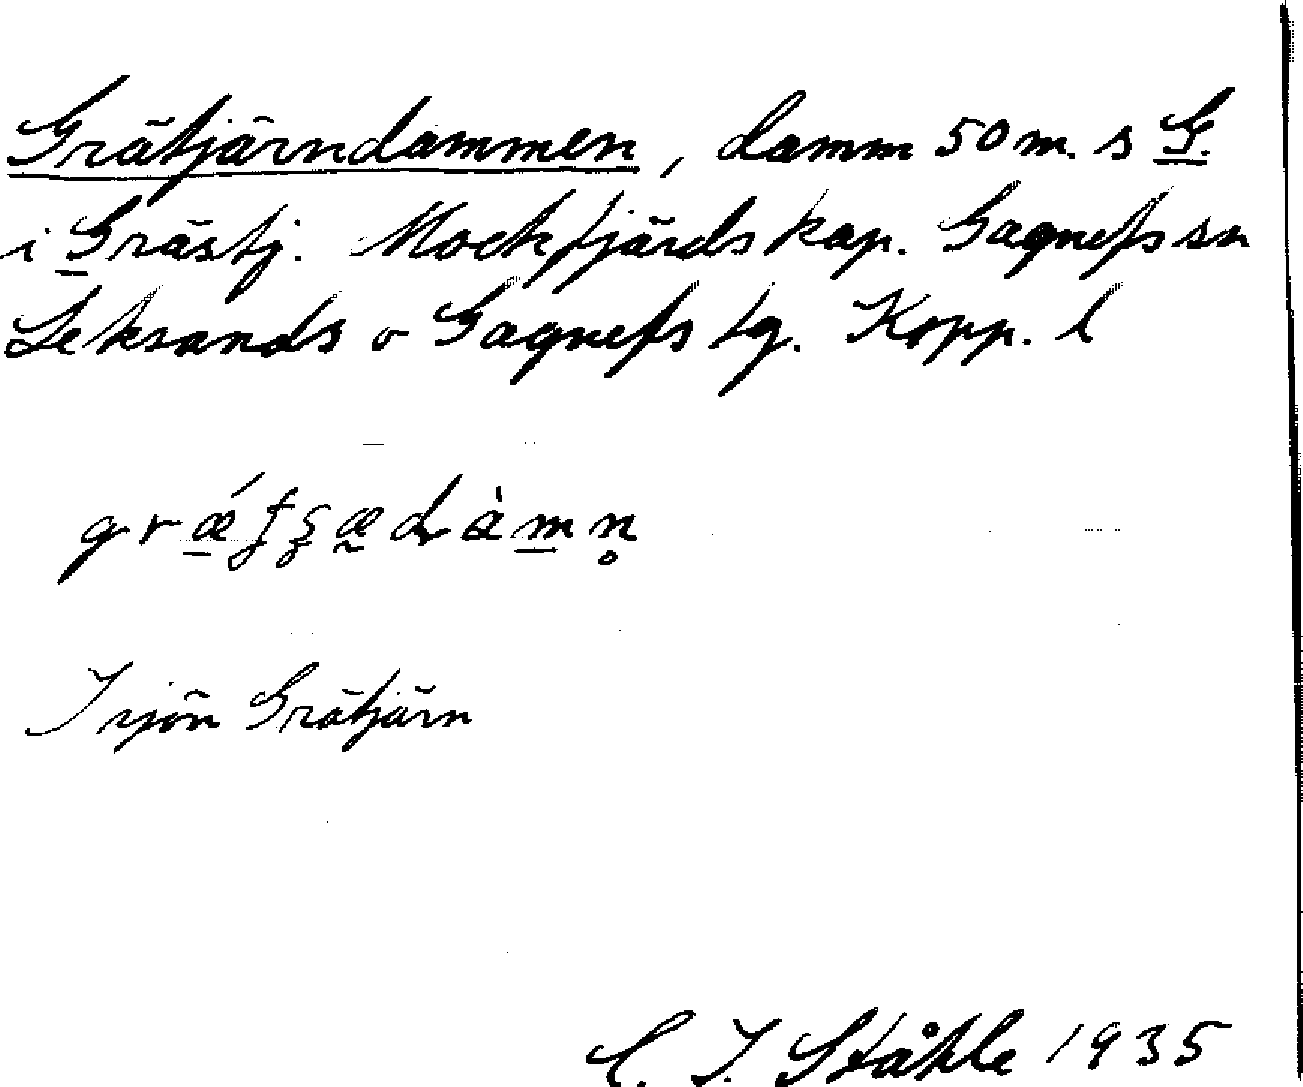 Grätjärndammen, damm 50 m. s G.
i Grästj. Mockfjärds kap. Gagnefs sn
Leksands o Gagnefs tg. Kopp. l
I sjön Grätjärn
C. I. Ståhle 1935